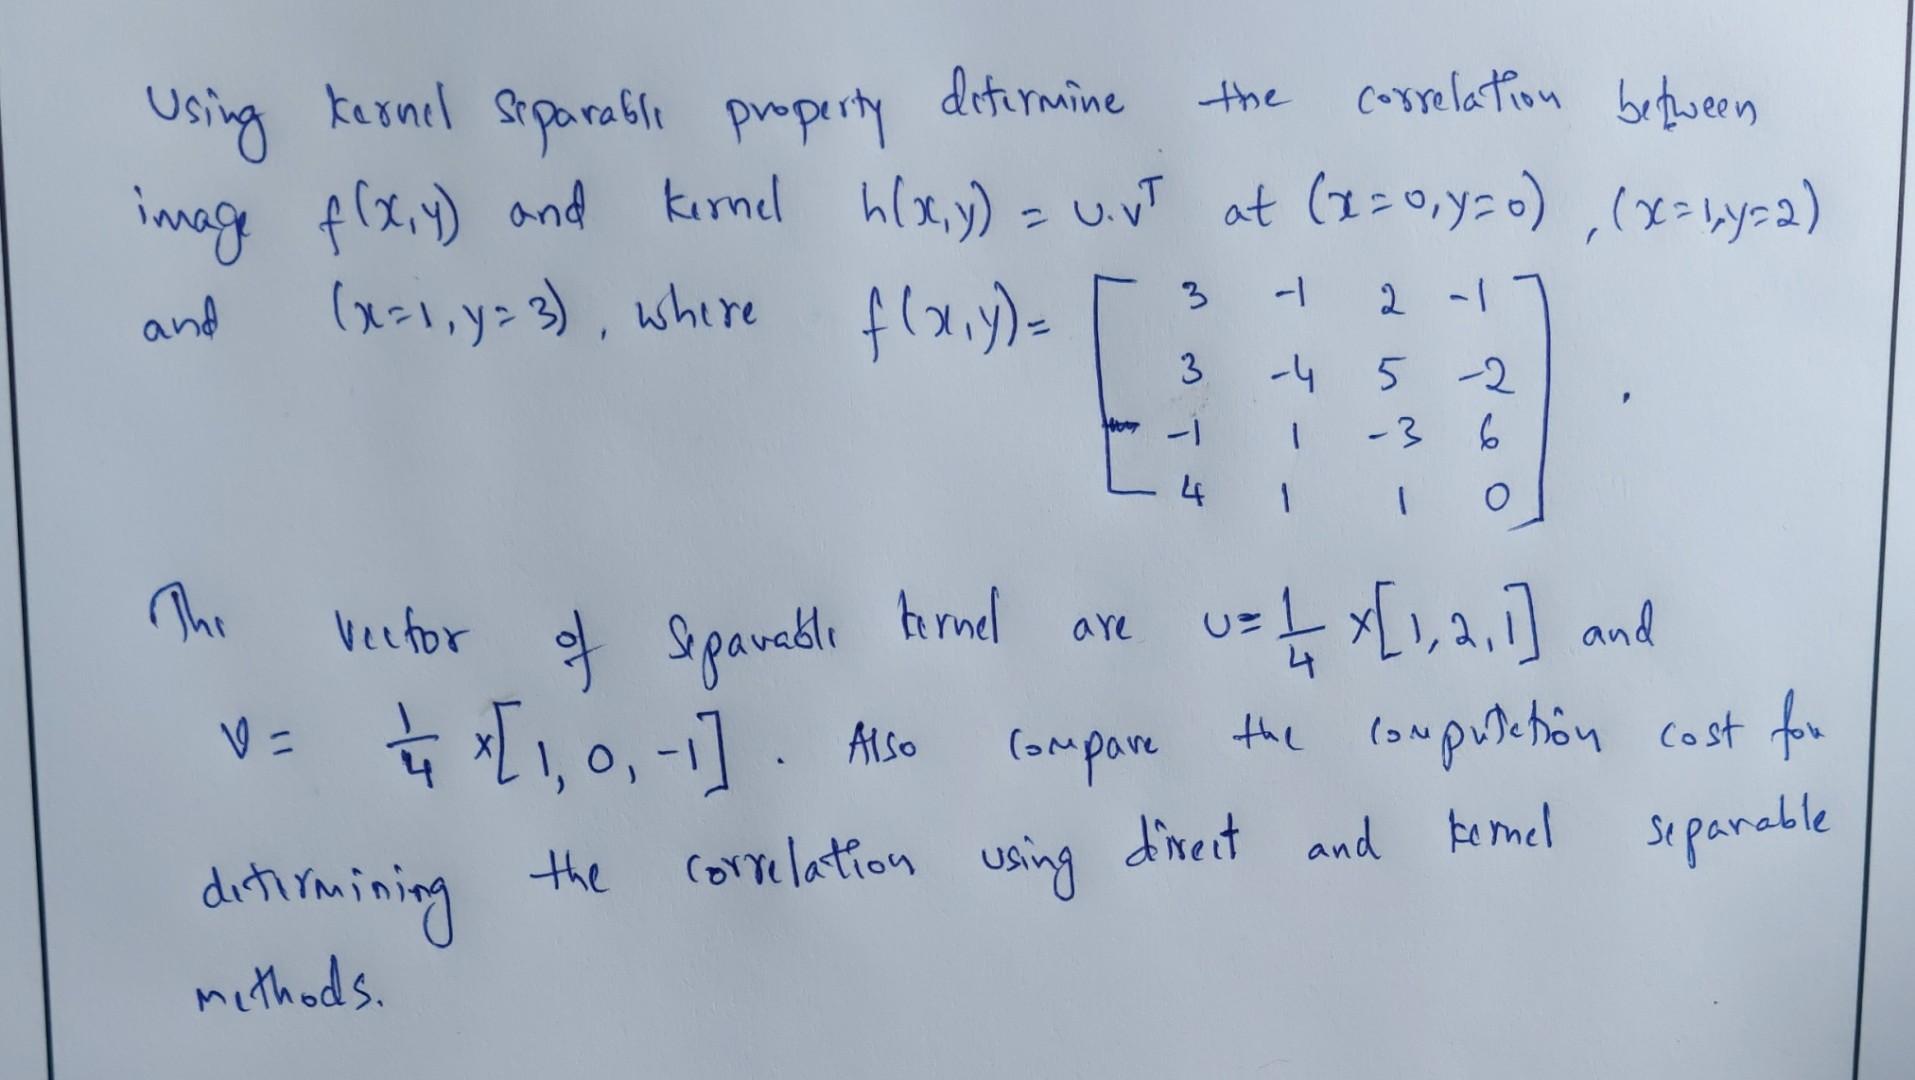 Using kernel separable property determine the correlation between
image f(x,y) and kernel h(x,y) = u.vᵀ at (x=0,y=0), (x=1,y=2)
and (x=1,y=3), where f(x,y)= [ 3 -1 2 -1
3 -4 5 -2
-1 1 -3 6
4 1 1 0 ].
The vector of separable kernel are u = 1/4 x[1,2,1] and
v = 1/4 x[1,0,-1]. Also compare the computation cost for
determining the correlation using direct and kernel separable
methods.